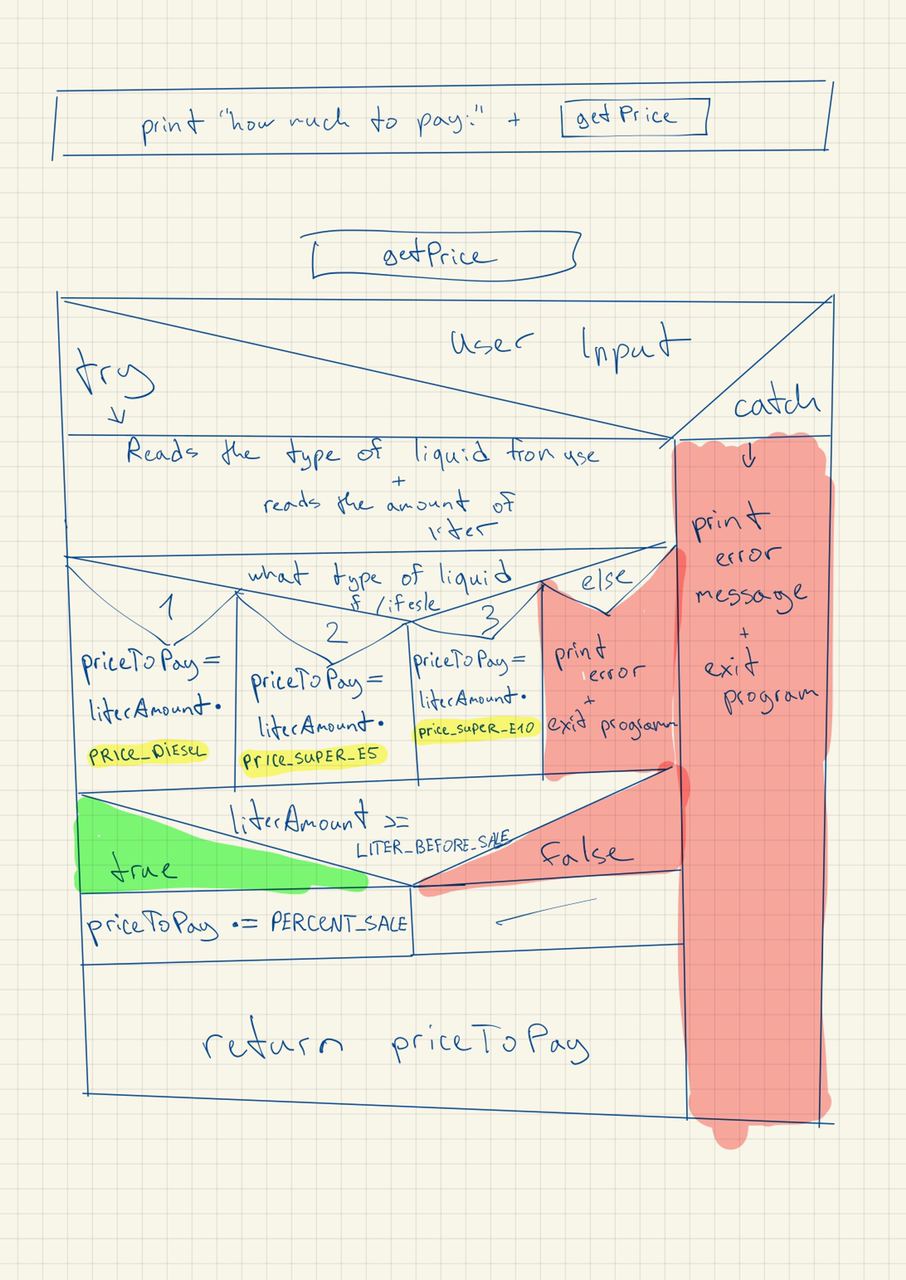 print "how much to pay:" + getPrice
getPrice
User Input
try
catch
Reads the type of liquid fron use
+
reads the amount of
liter
print
error
message
+
exit
program
what type of liquid
if /ifesle
1
2
3
else
priceToPay =
literAmount •
PRICE_DIESEL
priceToPay =
literAmount •
PRICE_SUPER_E5
priceToPay =
literAmount •
price_SUPER_E10
print
error
+
exit program
literAmount >=
LITER_BEFORE_SALE
true
False
priceToPay •= PERCENT_SALE
return priceToPay